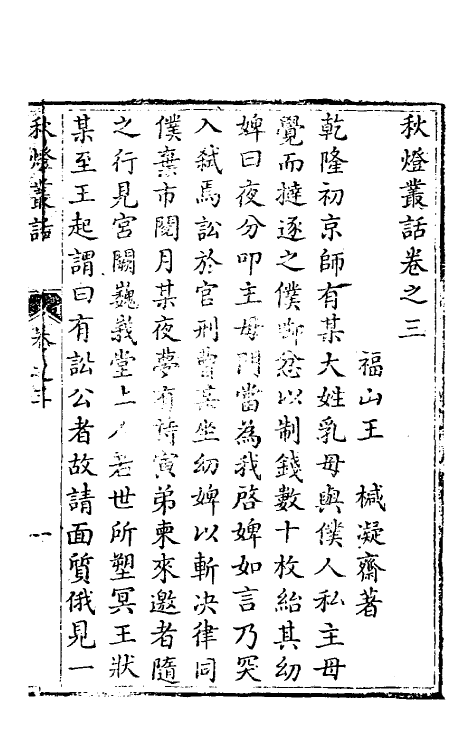 秋燈叢話卷之三
福山王 椷凝齋著
乾隆初京師有某大姓乳母與僕人私主母
覺而撻逐之僕啣忿以制錢數十枚紿其幼
婢曰夜分叩主母門當為我啓婢如言乃突
入弑焉訟於官刑曹某坐幼婢以斬决律同
僕棄市閱月某夜夢有持寅弟柬來邀者隨
之行見宮闕巍峩堂上人若世所塑冥王狀
某至王起謂曰有訟公者故請面質俄見一
秋燈叢話
卷之三
一